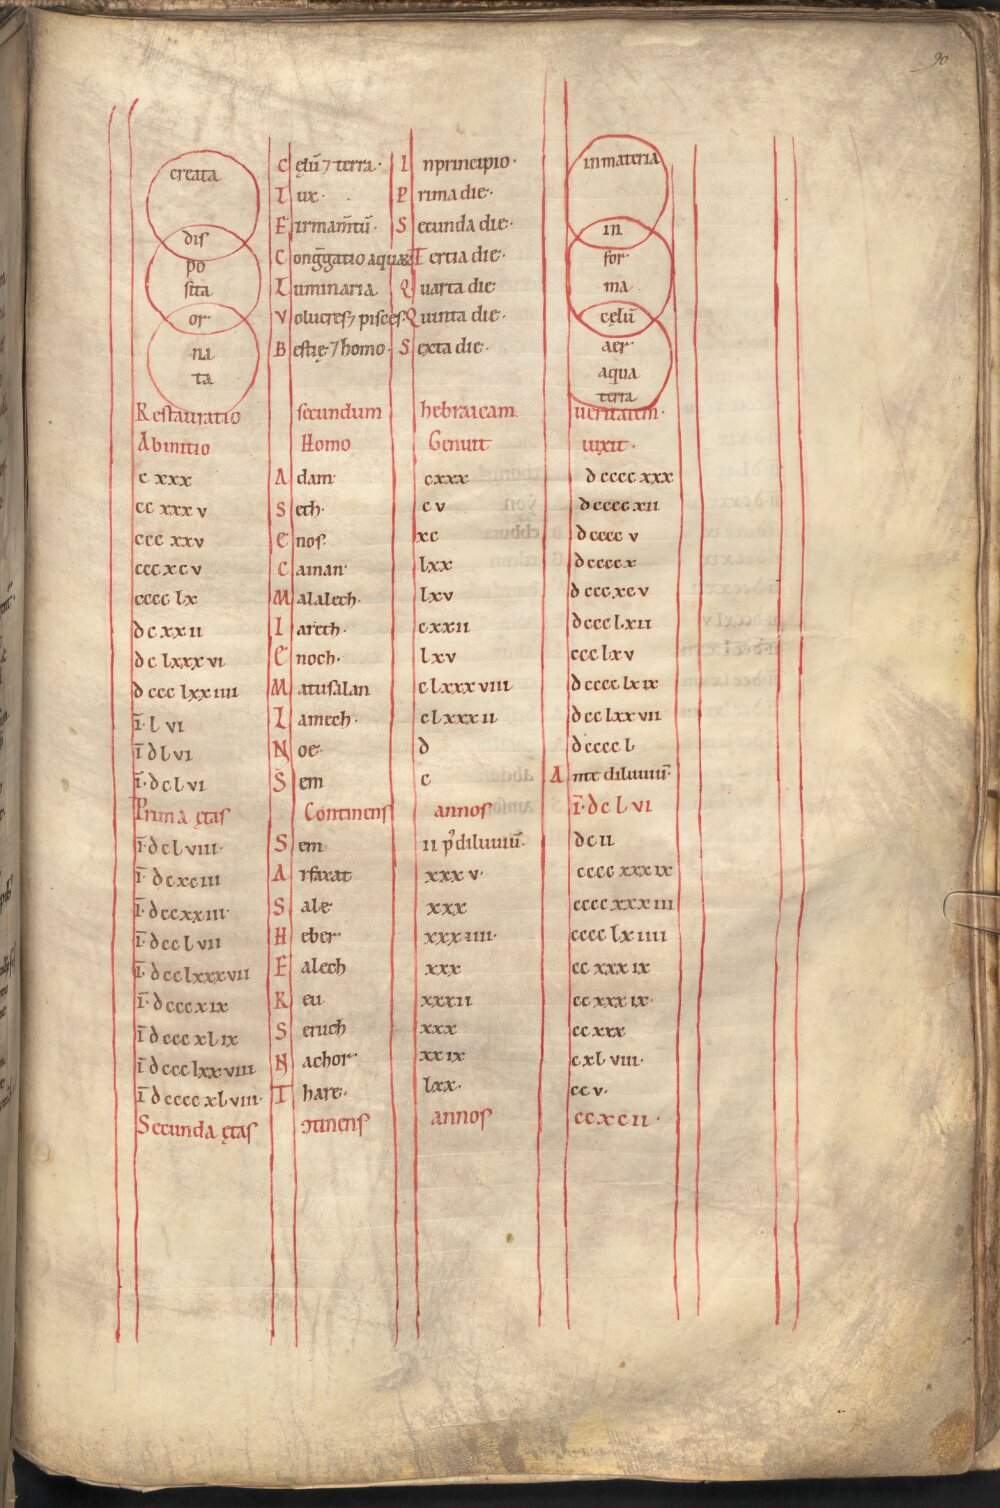 90
creata C ęlū ⁊ terra· I nprincipio· inmateria
L ux· P rima die·
dis F irmam̄tū· S ecunda die· in
po C ongg̅atio aquaꝝ T ertia die· for
sita L uminaria Q uarta die ma
or V olucres ⁊ pisces· Q uinta die· cęlū
na B estię ⁊ homo· S exta die· aer
ta aqua
terra
Restauratio secundum hebraicam ueritatem·
Abinitio Homo Genuit uixit·
c xxx A dam· cxxx d cccc xxx
cc xxx v S eth· c v d cccc xii
ccc xxv E nos· xc d cccc v
ccc xc v C ainan· lxx d cccc x
cccc lx M alalech· lxv d ccc xc v
dc xx ii I areth· c xx ii d ccc lx ii
dc lxxx vi E noch· lxv ccc lx v
d ccc lxx iiii M atusalan c lxxx viii d cccc lx ix
ī· l vi L amech· c lxxx ii d cc lxx vii
ī d l vi N oe· d d cccc l
ī· d c l vi S em c A nte diluuiū·
Prima ętas Continens annos ī· d c l vi
ī· d c l viii· S em ii p᾽ diluuiū· d c ii
ī· d c xc iii A rfaxat xxx v· cccc xxx ix
ī· d cc xx iii· S ale· xxx cccc xxx iii
ī· d cc l vii H eber xxx iiii· cccc lx iiii
ī· d cc lxxx vii F alech xxx cc xxx ix
ī· d ccc x ix R eu xxx ii cc xxx ix·
ī d ccc xl ix S eruch xxx cc xxx
ī d ccc lxx viii N achor xx ix c xl viii·
ī d cccc xl viii· T hare· lxx· cc v·
Secunda ętas ↄtinens annos cc xc ii·